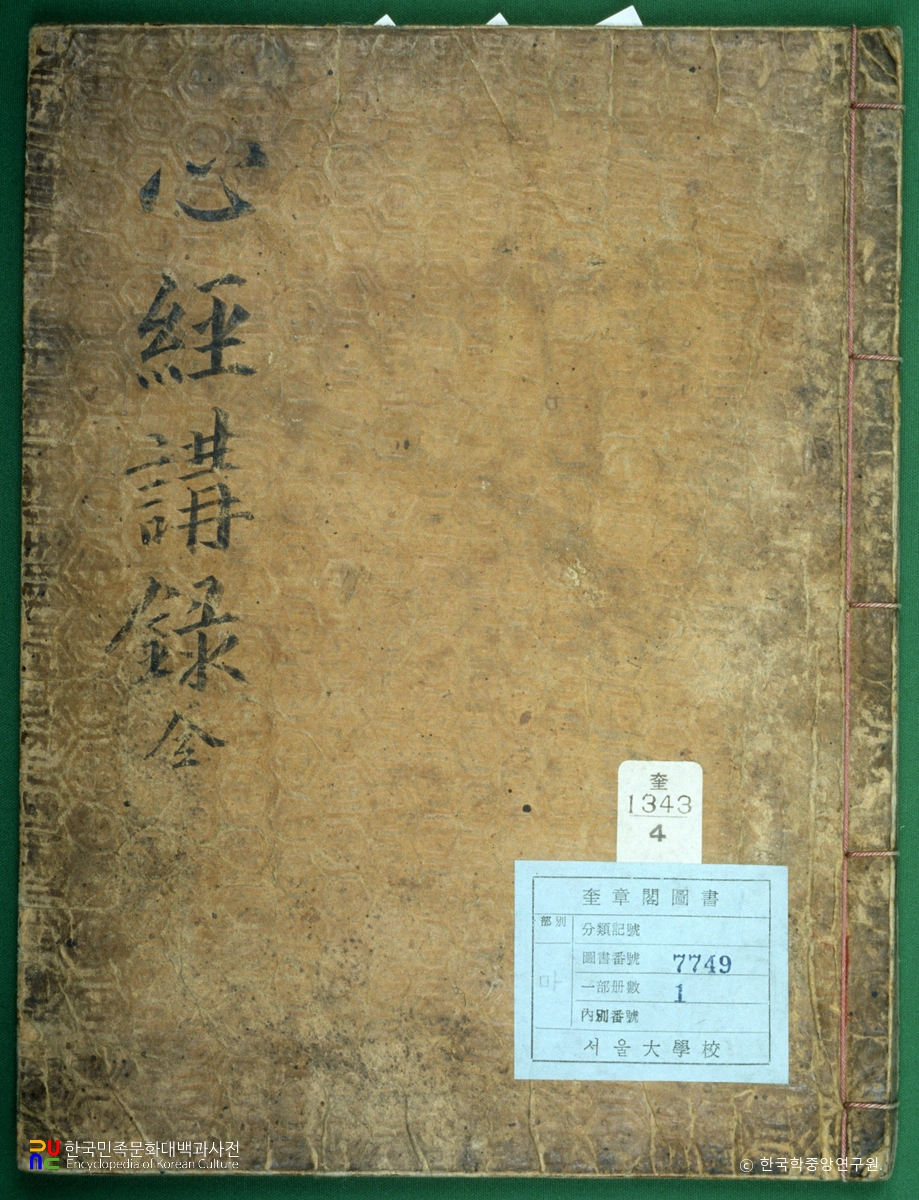 心經講録全
奎
1343
4
奎章閣圖書
部別
分類記號
圖書番號 7749
마
一部册數 1
內別番號
서울大學校
한국민족문화대백과사전
Encyclopedia of Korean Culture
© 한국학중앙연구원